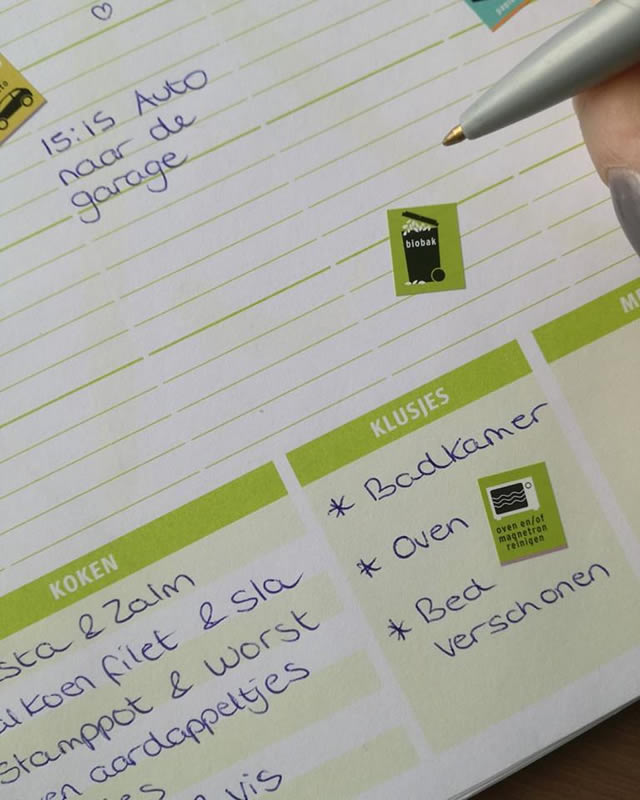 15:15 Auto
naar de
garage
biobak
KLUSJES
* Badkamer
* Oven
oven en/of
magnetron
reinigen
* Bed
verschonen
KOKEN
& Zalm
filet & sla
Stamppot & worst
aardappeltjes
vis